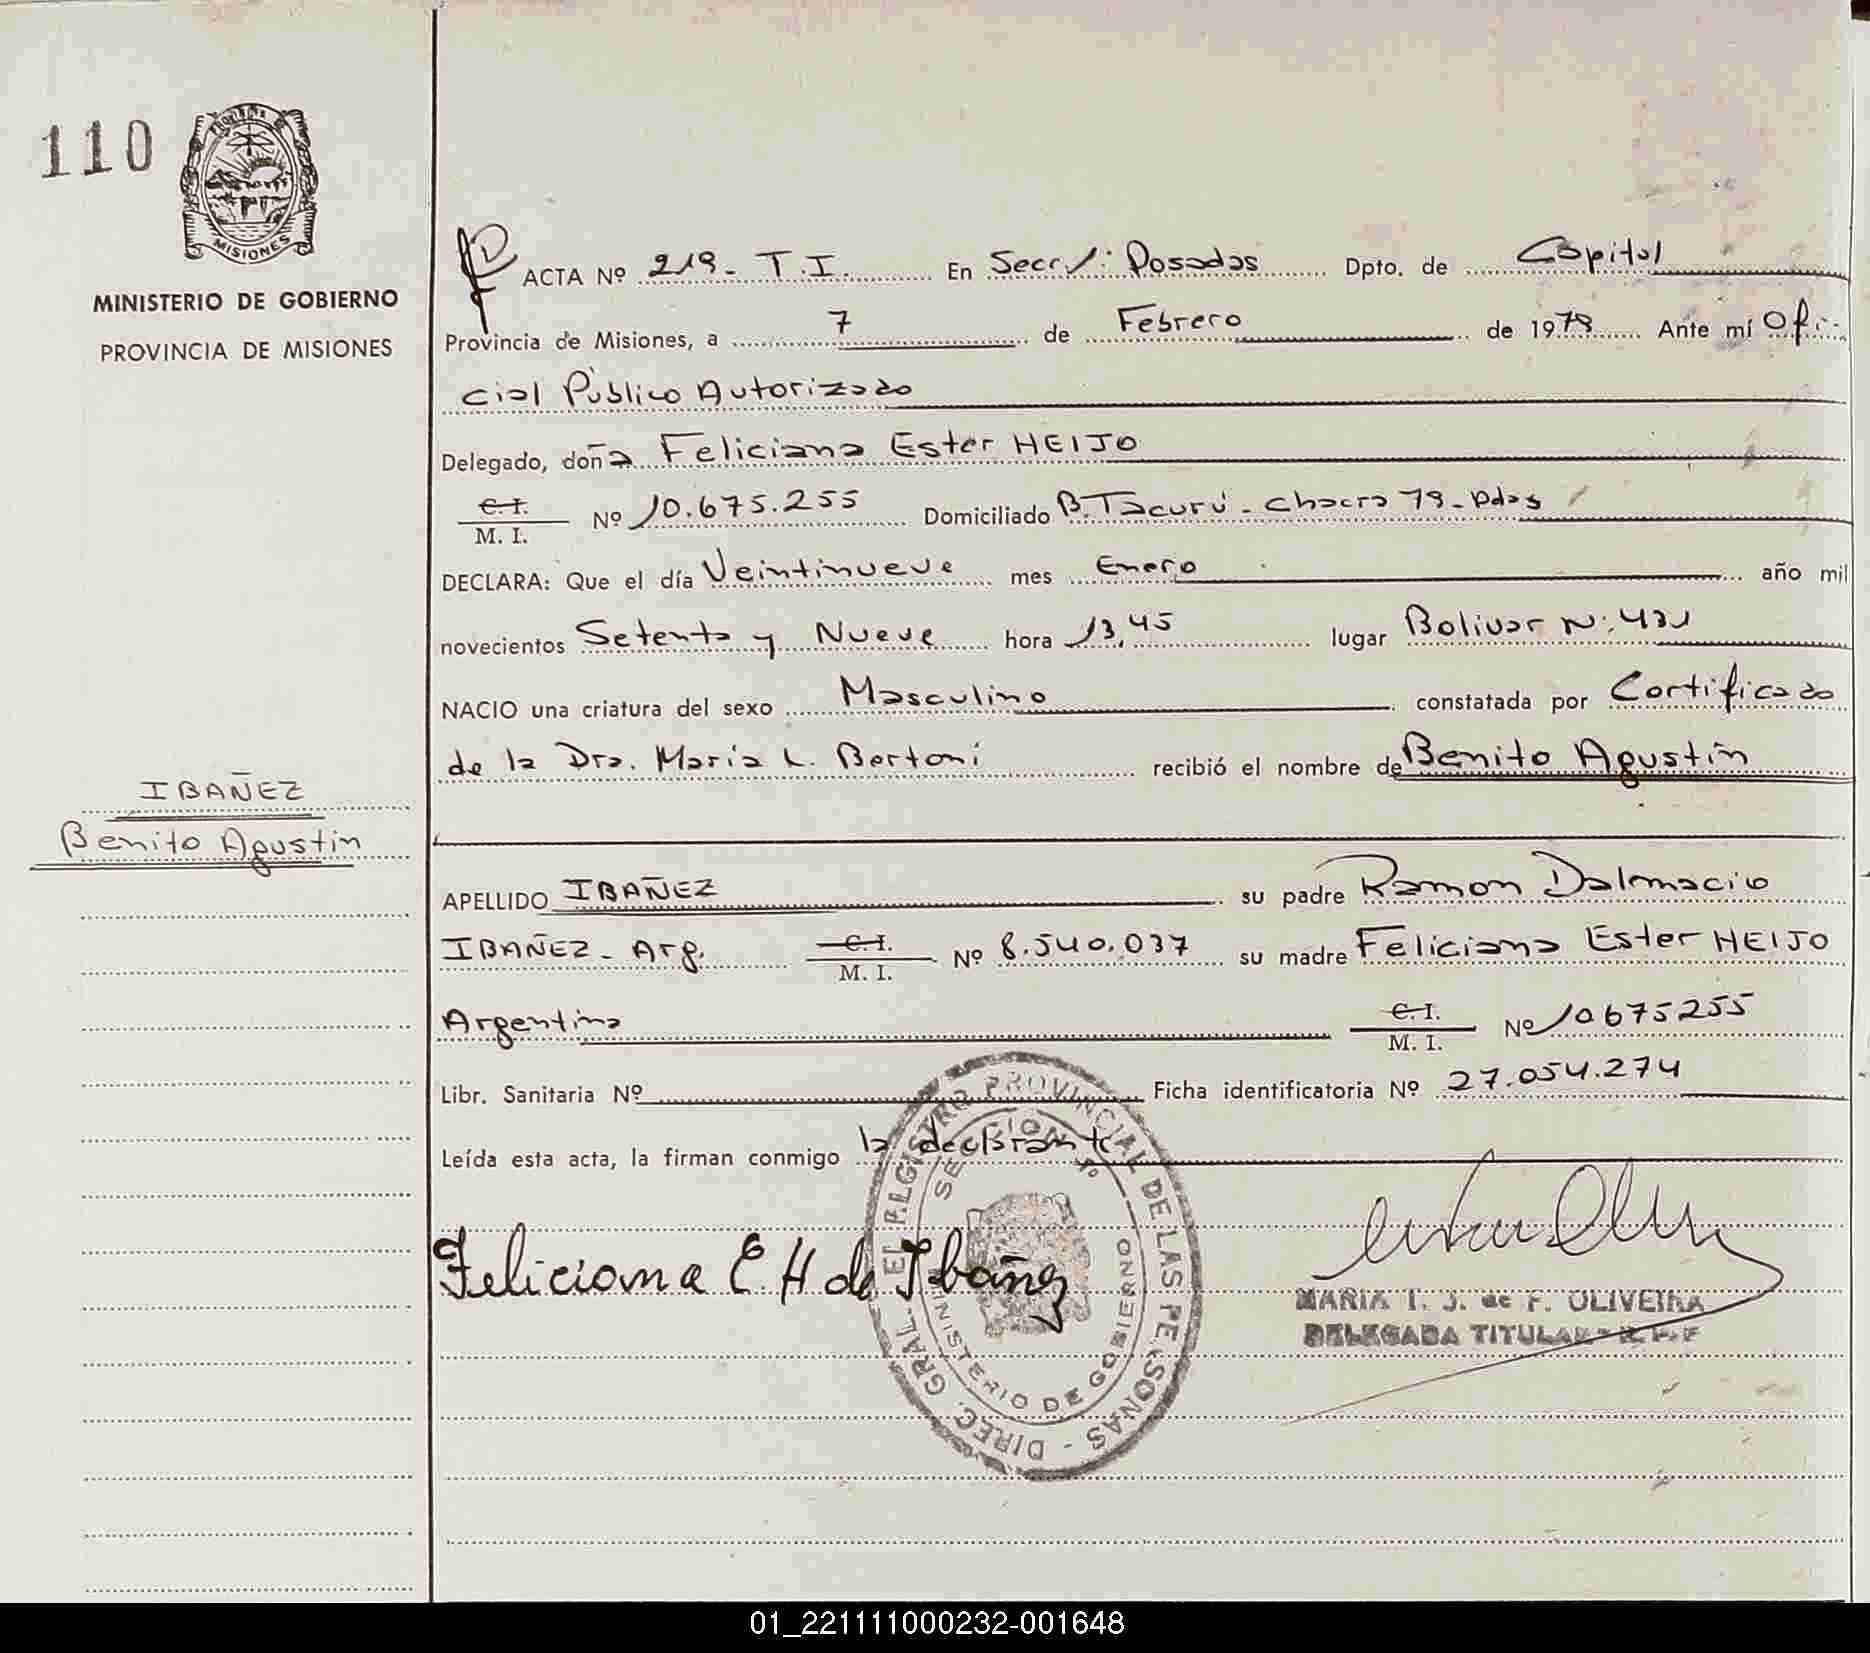 110
PROVINCIA DE
MISIONES
MINISTERIO DE GOBIERNO
PROVINCIA DE MISIONES
IBAÑEZ
Benito Agustin
ACTA Nº 219- T.I. En Secc/: Posadas Dpto. de Capital
Provincia de Misiones, a 7 de Febrero de 1979 Ante mí Ofi-
cial Público Autorizado
Delegado, doña Feliciana Ester HEIJO
C.I.
M. I. Nº 10.675.255 Domiciliado B. Tacurú - Chacra 79 - Pdas
DECLARA: Que el día Veintinueve mes Enero año mil
novecientos Setenta y Nueve hora 13,45 lugar Bolivar N: 431
NACIO una criatura del sexo Masculino constatada por Certificado
de la Dra. Maria L. Bertoni recibió el nombre de Benito Agustín
APELLIDO IBAÑEZ su padre Ramon Dalmacio
IBAÑEZ - Arg. C.I. M. I. Nº 8.540.037 su madre Feliciana Ester HEIJO
Argentina C.I. M. I. Nº 10675255
Libr. Sanitaria Nº Ficha identificatoria Nº 27.054.274
Leída esta acta, la firman conmigo la declarante
Feliciana E. H de Ibañez
DIREC. GRAL. EL REGISTRO PROVINCIAL DE LAS PERSONAS -
SECCION 1º
MINISTERIO DE GOBIERNO
MARIA T. J. de F. OLIVEIRA
DELEGADA TITULAR - R.P.P
01_221111000232-001648